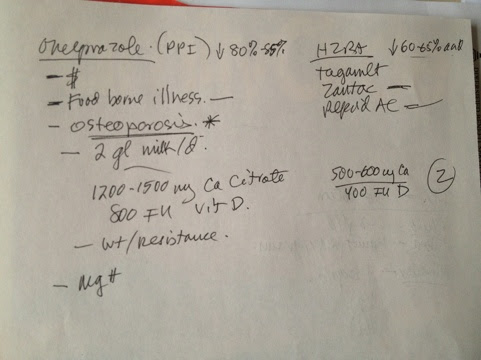 Omeprazole · (PPI) ↓ 80%-85%
- #
- Food borne illness. —
- Osteoporosis. *
- 2 gl milk/d.
1200-1500 mg Ca Citrate
800 IU Vit D.
- wt/resistance.
- Mg #
H2RA ↓ 60-65% acid
Tagamet
Zantac —
Pepcid AC —
500-600 mg Ca
400 IU D
2